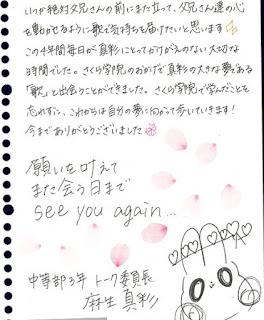 いつか絶対父兄さんの前にまた立って、父兄さん達の心
を動かせるように歌で気持ちを届けたいと思います
この4年間毎日が真彩にとってかけがえのない大切な
時間でした。さくら学院のおかげで真彩の大きな夢である
「歌」と出会うことができました。さくら学院で学んだことを
忘れずに、これからは自分の夢に向かって歩いていきます!
今までありがとうございました
願いを叶えて
また会う日まで
see you again...
中等部3年 トーク委員長
麻生真彩